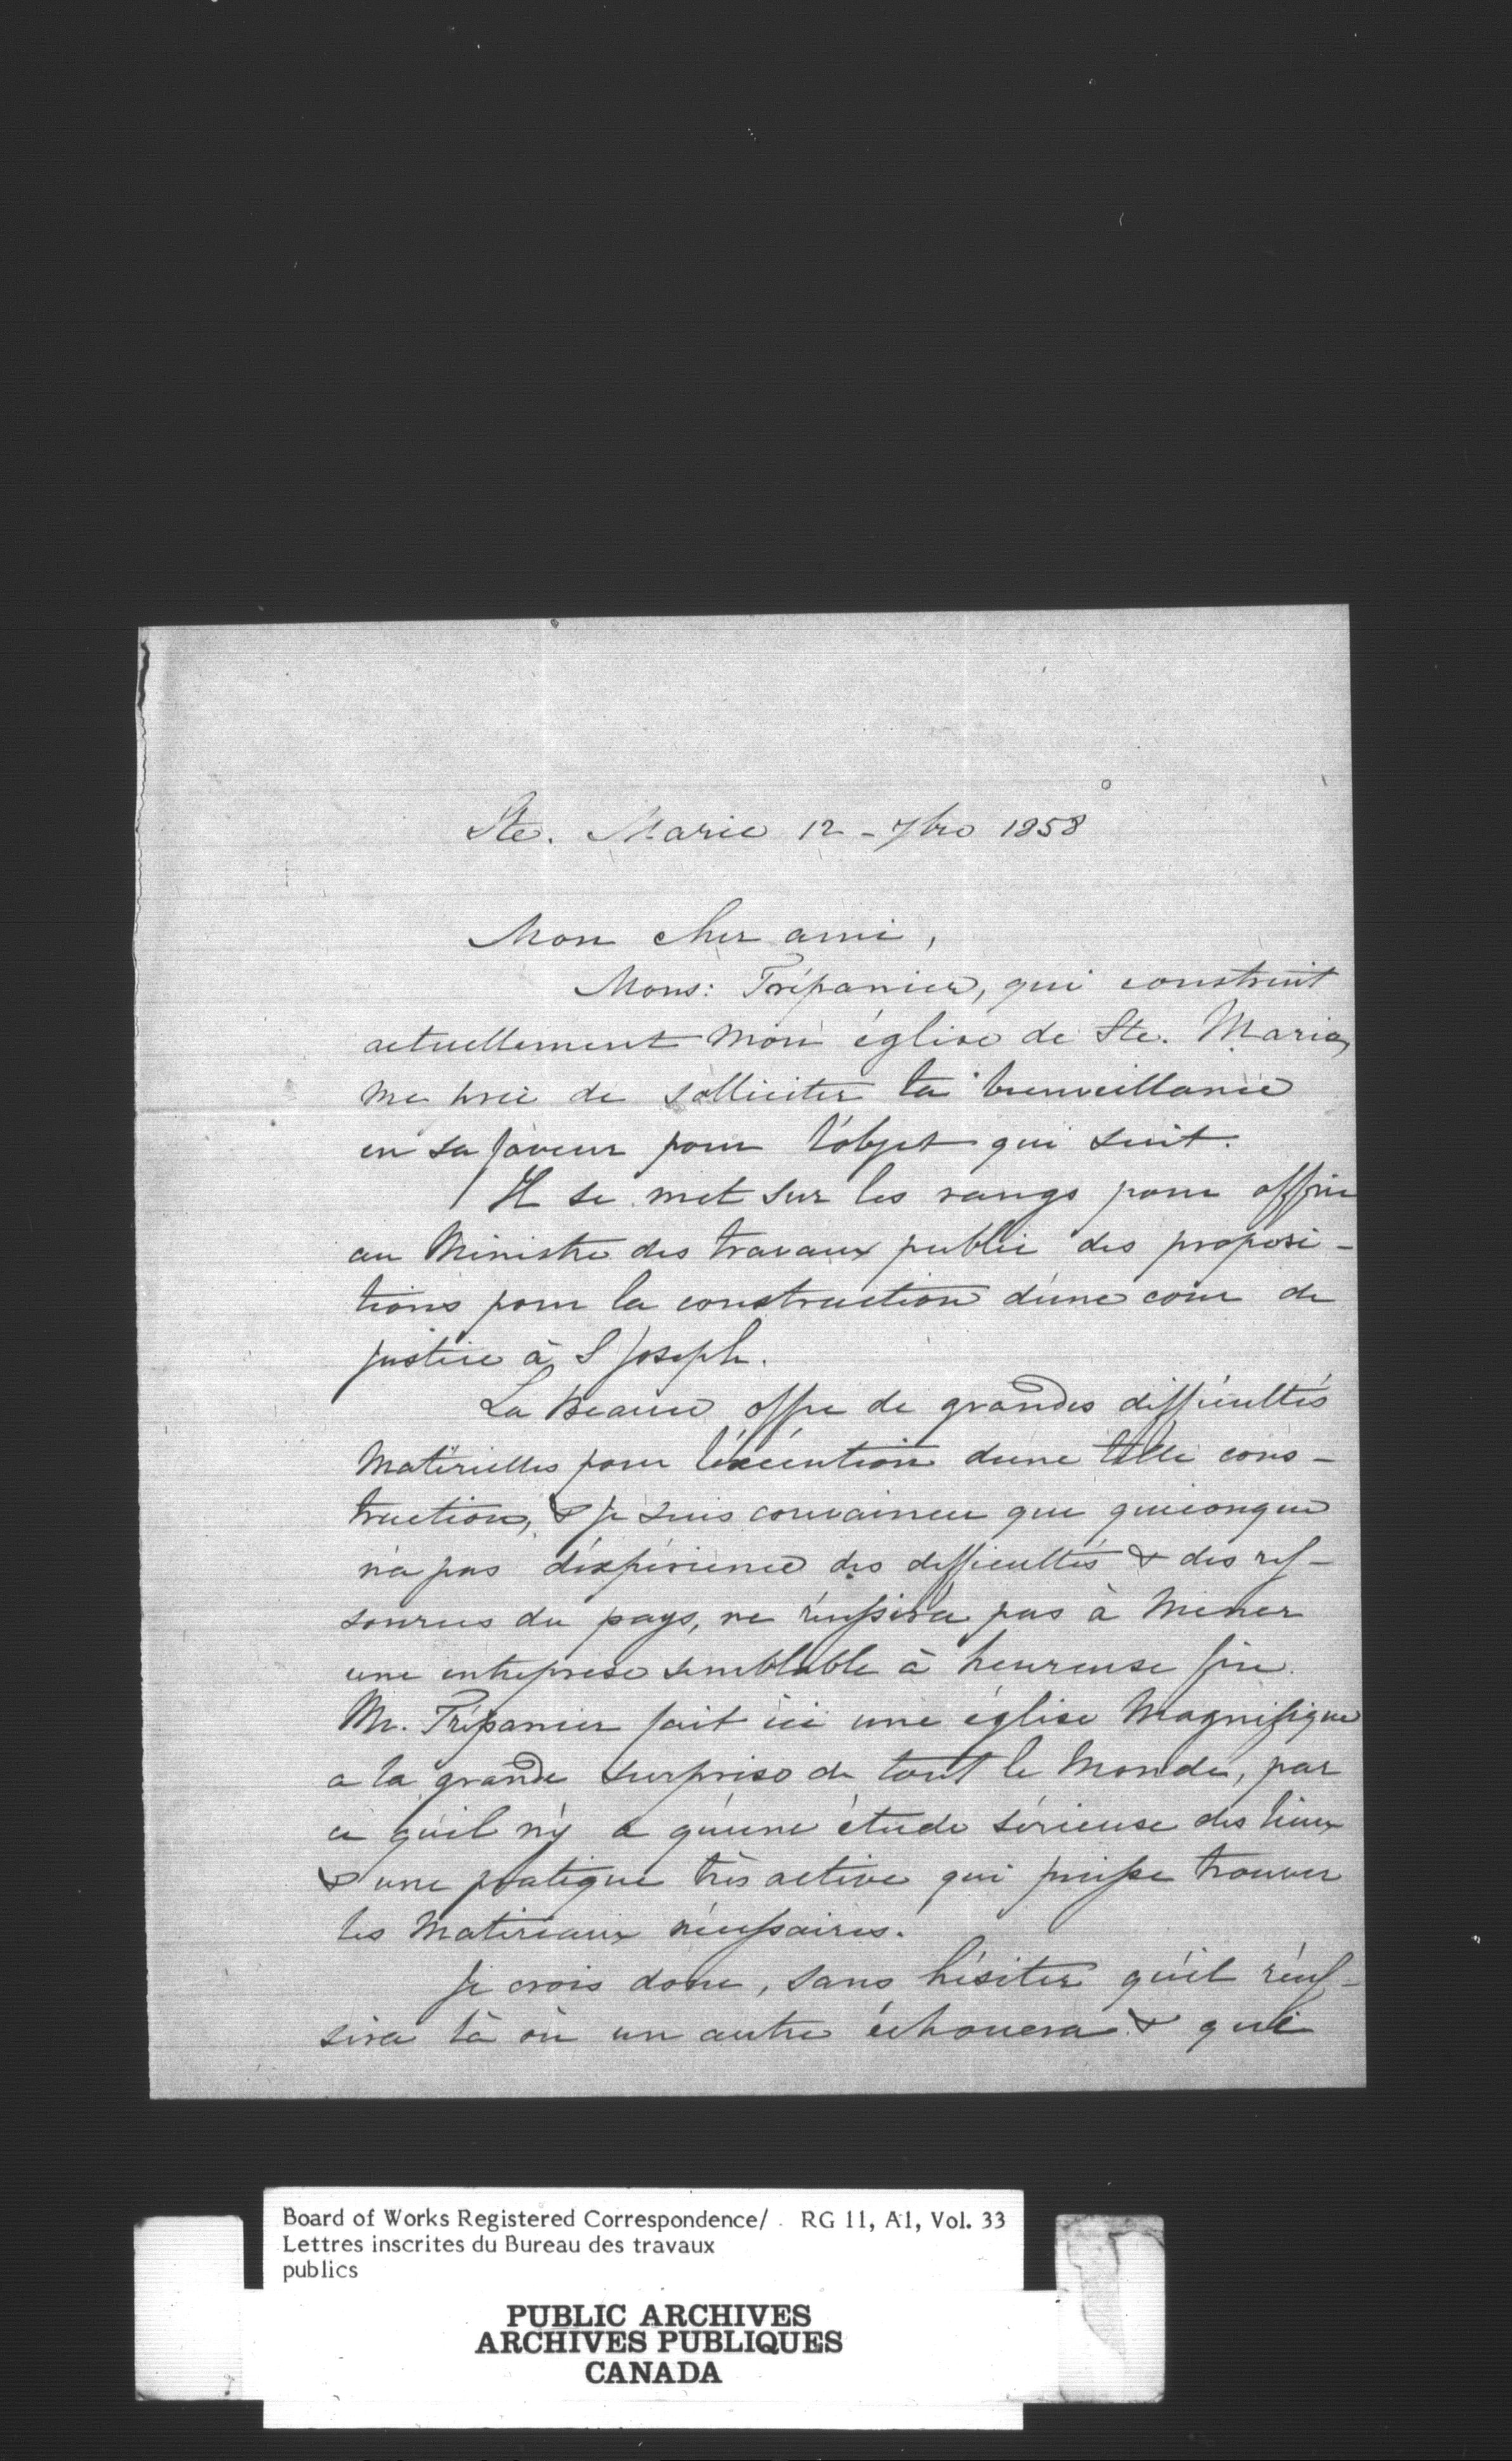 Ste. Marie 12 - 7bre 1858
Mon cher ami,
Mons: Trépanier, qui construit
actuellement mon église de Ste. Marie,
me prie de solliciter ta bienveillance
en sa faveur pour l'objet qui suit.
Il se met sur les rangs pour offrir
au Ministre des travaux public des proposi-
tions pour la construction d'une cour de
justice à S Joseph.
La Beauce offre de grandes difficultés
matérielles pour l'exécution d'une telle cons-
truction, & je suis convaincu que quiconque
n'a pas d'expérience des difficultés & des res-
sources du pays, ne réussira pas à mener
une entreprise semblable à heureuse fin.
Mr. Trépanier fait ici une église magnifique
a la grande surprise de tout le monde, par
ce qu'il n'y a qu'une étude sérieuse des lieux
& une pratique très active qui puisse trouver
les matériaux nécessaires.
Je crois donc, sans hésiter qu'il réus-
sira là où un autre échouera & que
Board of Works Registered Correspondence/ RG 11, A1, Vol. 33
Lettres inscrites du Bureau des travaux
publics
PUBLIC ARCHIVES
ARCHIVES PUBLIQUES
CANADA